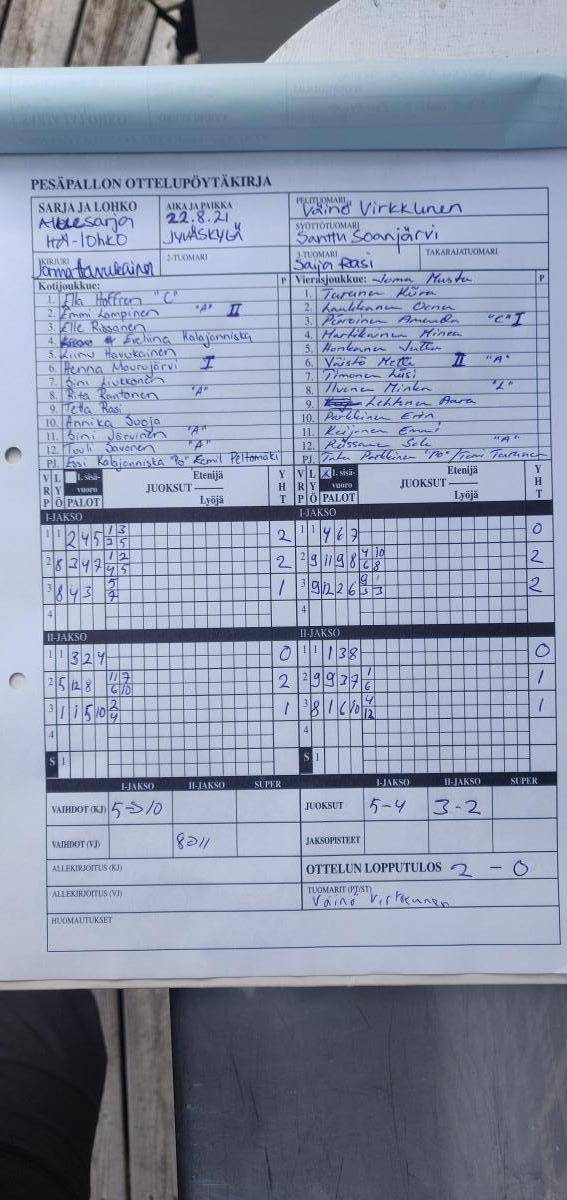 PESÄPALLON OTTELUPÖYTÄKIRJA
SARJA JA LOHKO
Aluesarja
-lohko
AIKA JA PAIKKA
22.8.21
JYVÄSKYLÄ
PELITUOMARI
Väinö Virkkunen
SYÖTTÖTUOMARI
Santtu Soanjärvi
KIRJURI
Jorma Havukainen
2-TUOMARI
3-TUOMARI
Saija Rasi
TAKARAJATUOMARI
Kotijoukkue: P
1. Ella Hoffren "C"
2. Emmi Lampinen "A" II
3. Elle Rissanen
4. Eveliina Kalajanniska
5. Liinu Havukainen
6. Henna Mourujärvi I
7. Sini Liukkonen
8. Rita Rantonen "A"
9. Tella Rasi
10. Annika Suoja
11. Sini Järvinen "A"
12. Tuuli Savonen "A"
PJ. Essi Kalajanniska "Po" Eemil Peltomäki
Vierasjoukkue: Joma Musta P
1. Turunen Kiira
2. Laukkanen Oona
3. Piiroinen Amanda "C" I
4. Martikainen Minea
5. Honkanen Jutta
6. Väistö Metta II "A"
7. Timonen Liisi
8. Ilvonen Minka "L"
9. Lehtinen Aura
10. Parkkinen Erin
11. Keijonen Emmi
12. Rossane Sole "A"
PJ. Parkkinen "PO" / Tomi Turunen
V R P L Y Ö 1. sisävuoro PALOT JUOKSUT Etenijä Lyöjä Y H T
V R P L Y Ö X 1. sisävuoro PALOT JUOKSUT Etenijä Lyöjä Y H T
I-JAKSO
1 1 2 4 5 1/2 3/5 2
2 8 3 4 7 1/4 2/5 2
3 8 4 3 5/7 1
4
I-JAKSO
1 1 4 6 7 0
2 9 11 9 8 4/6 10/8 2
3 9 12 2 6 9/3 1/3 2
4
II-JAKSO
1 1 3 2 4 0
2 5 12 8 11/6 7/10 2
3 1 1 5 10 2/4 1
4
S 1
II-JAKSO
1 1 1 3 8 0
2 9 9 3 7 1/6 1
3 8 1 6 10 4/12 1
4
S 1
I-JAKSO II-JAKSO SUPER
VAIHDOT (KJ) 5->10
VAIHDOT (VJ) 8->11
I-JAKSO II-JAKSO SUPER
JUOKSUT 5-4 3-2
JAKSOPISTEET
ALLEKIRJOITUS (KJ)
OTTELUN LOPPUTULOS 2 - 0
ALLEKIRJOITUS (VJ)
TUOMARIT (PT/ST)
Väinö Virkkunen
HUOMAUTUKSET